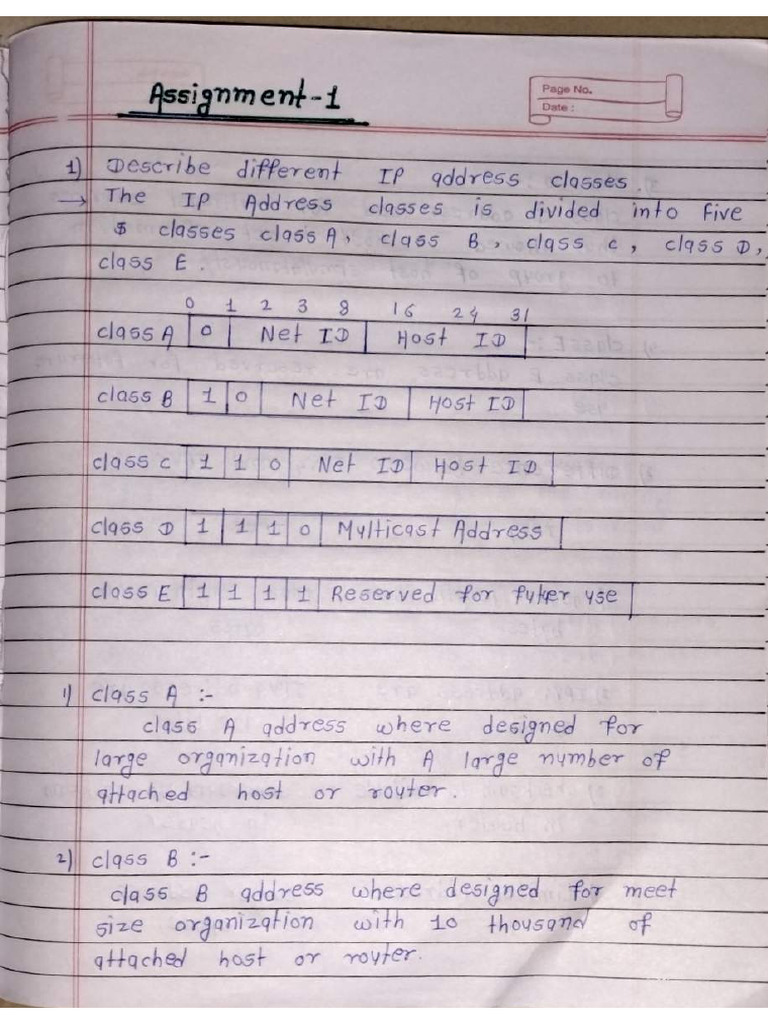 Assignment-1
Page No.
Date :
1) Describe different IP address classes.
→ The IP Address classes is divided into five
classes class A, class B, class c, class D,
class E.
0 1 2 3 8 16 24 31
class A 0 Net ID Host ID
class B 1 0 Net ID Host ID
class c 1 1 0 Net ID Host ID
class D 1 1 1 0 Multicast Address
class E 1 1 1 1 Reserved for futer use
1) class A :-
class A address where designed for
large organization with A large number of
attached host or router.
2) class B :-
class B address where designed for meet
size organization with 10 thousand of
attached host or router.